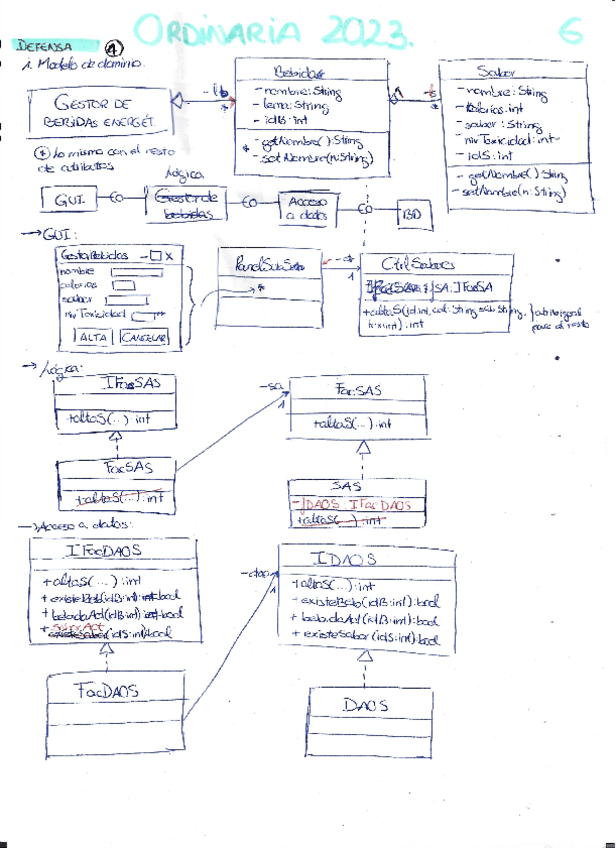 ORDINARIA 2023.
6
DEFENSA
1
i. Modelo de dominio.
GESTOR DE
BEBIDAS ENERGÉT.
Bebidas
- nombre: String
- lema: String
- idB: int
- getNombre(): String
- setNombre(n: String)
Sabor
- nombre: String
- calorias: int
- sabor: String
- nivToxicidad: int
- idS: int
- getNombre() String
- setNombre(n: String)
(*) Lo mismo con el resto
de atributos
GUI
Lógica
Gestor de
bebidas
Acceso
a datos
BD
→ GUI:
GestaBebidas - □ X
nombre
calorias
sabor
nivToxicidad
ALTA
CANCELAR
CtrlSabores
SA: IFacSA
→ Lógica:
IFacSAS
+altaS(...) int
FacSAS
+altaS(...): int
- sa
1
FacSAS
+altaS(...): int
SAS
- DAOS: IFacDAOS
+altaS(...): int
→ Acceso a datos:
IFacDAOS
+ altaS(...): int
+ existeBeb(idB: int): bool
+ bebidaAct(idB: int): bool
+ existeSabor(idS: int): bool
FacDAOS
- dao
1
IDAOS
+altaS(...): int
- existeBeb(idB: int): bool
+ bebidaAct(idB: int): bool
+ existeSabor(idS: int): bool
DAOS